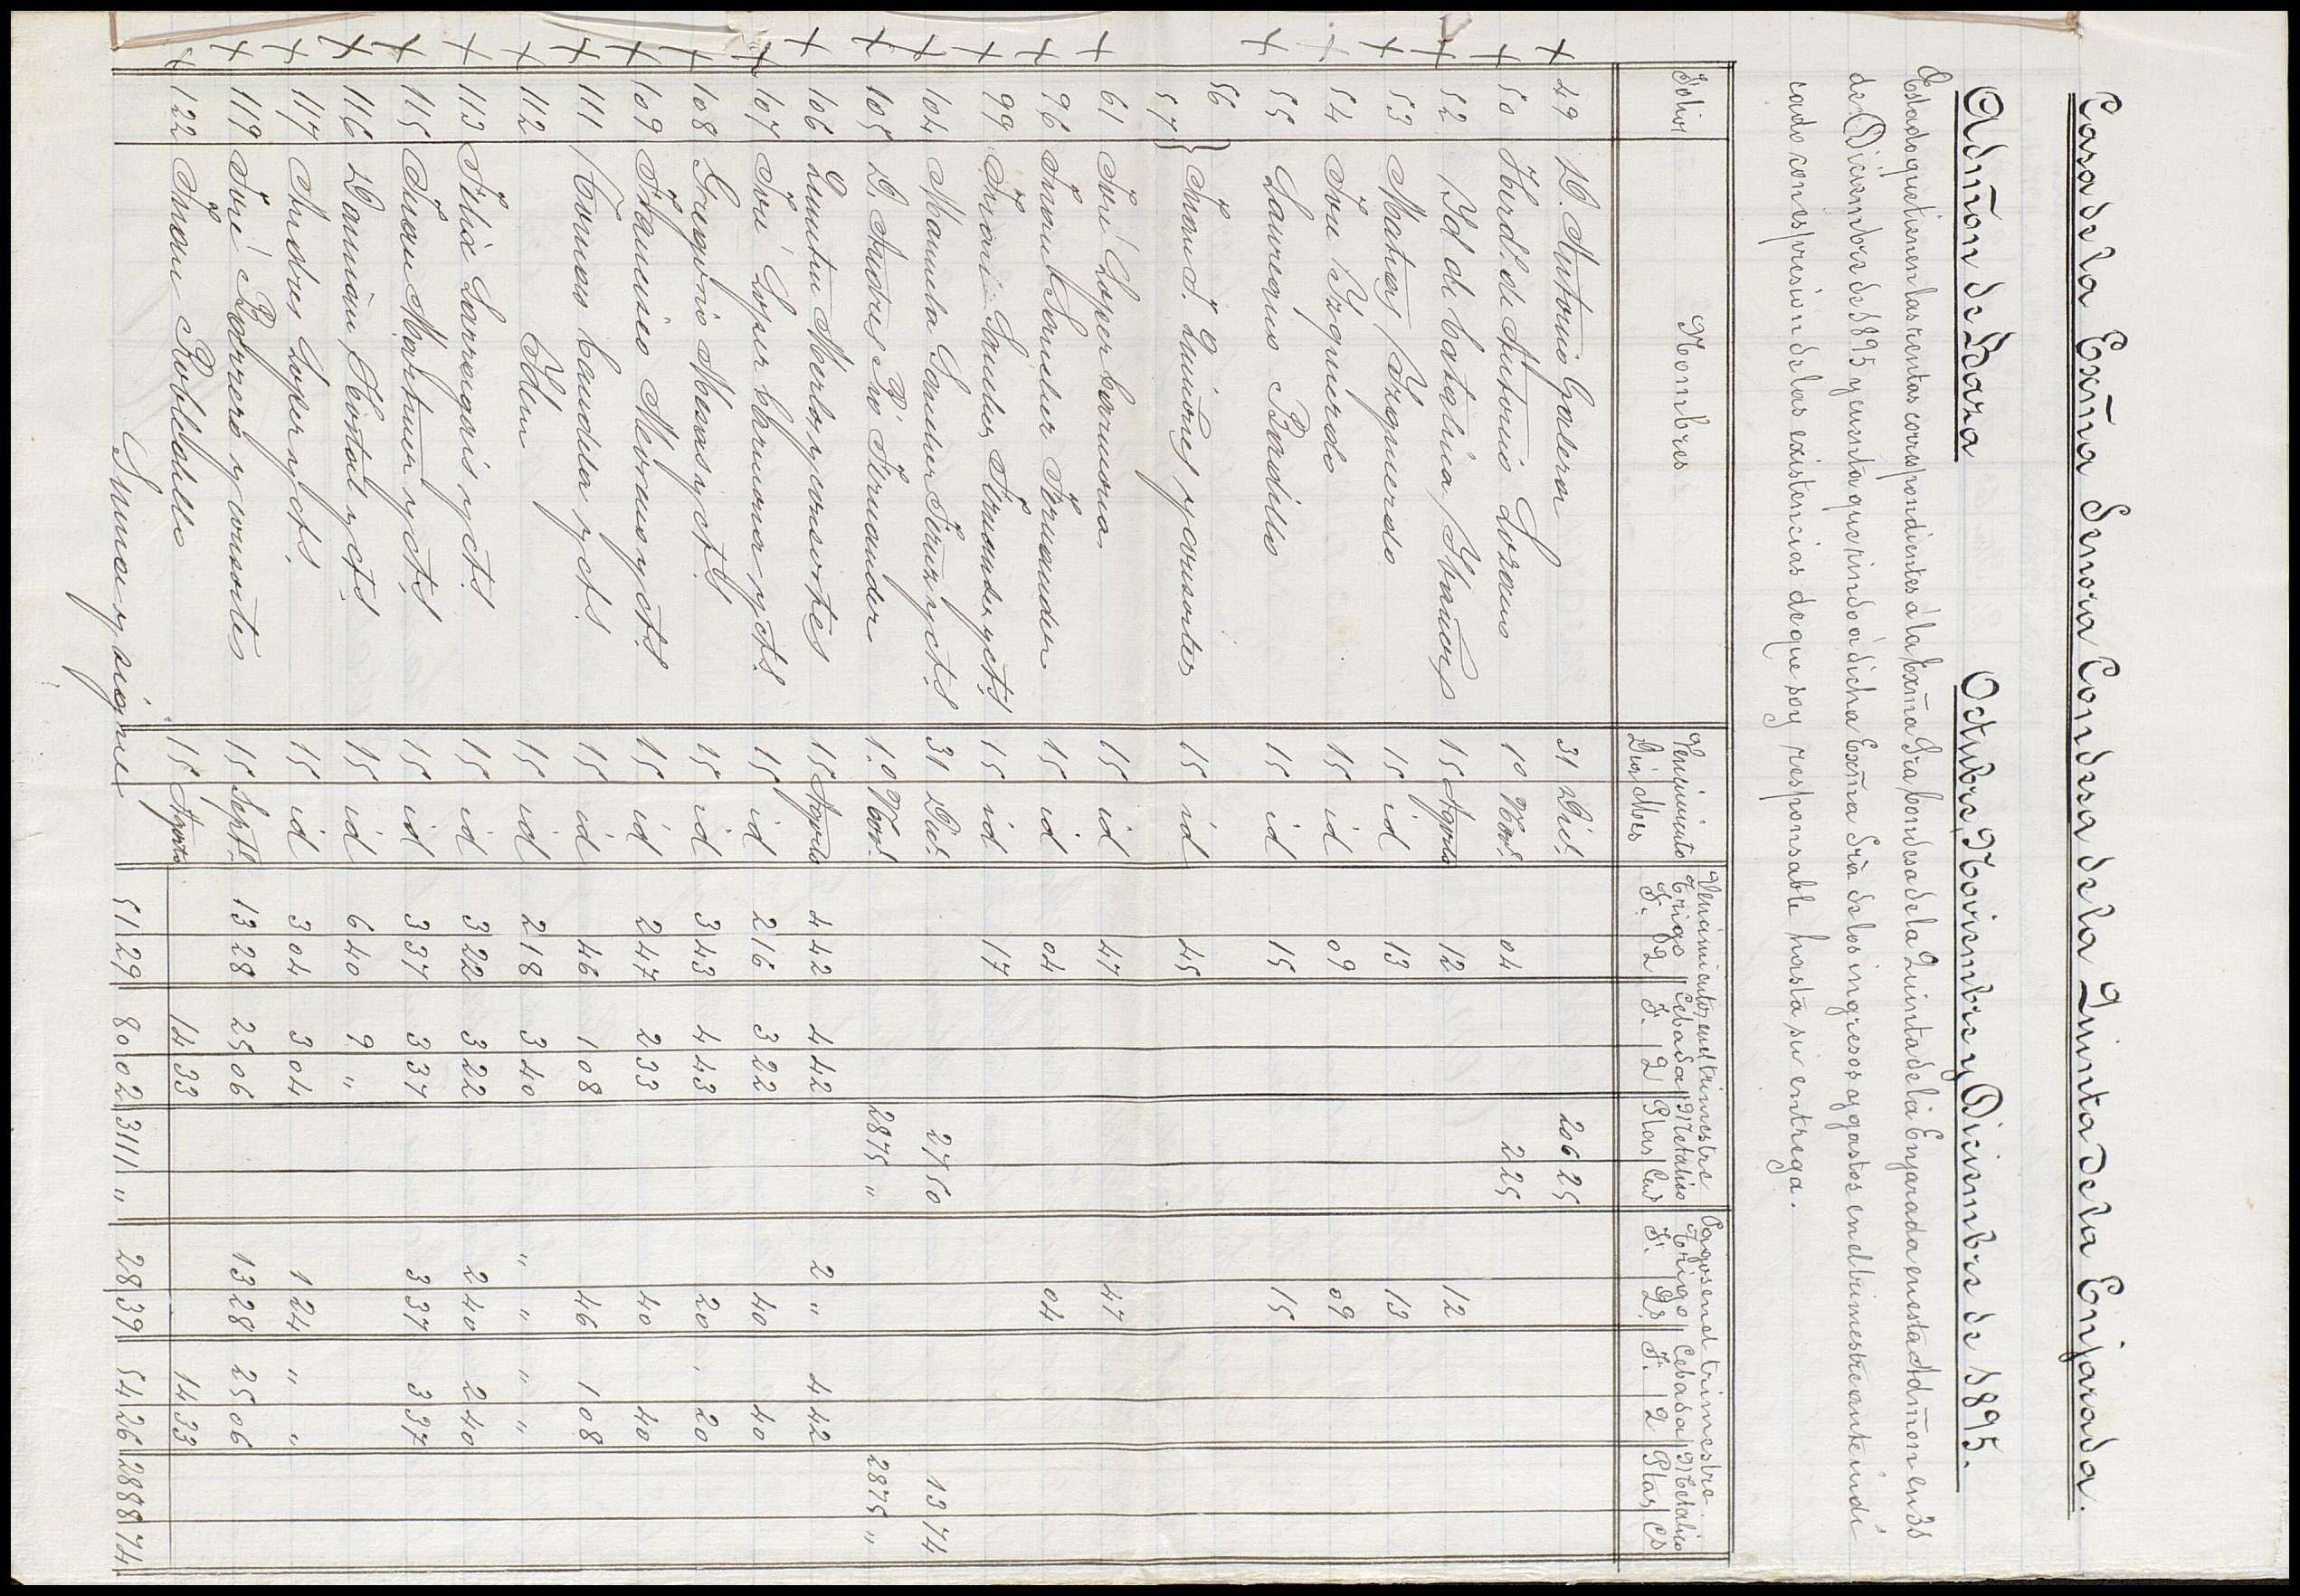 Casa de la Exm̃a Señora Condesa de la Quinta de la Enjarada.
Admõn de Baza Octubre, Noviembre y Diciembre de 1895.
Estado que tienen las rentas correspondientes á la Exm̃a Sra Condesa de la Quinta de la Enjarada en esta Admõn en 31
de Diciembre de 1895 y cuenta que rindo á dicha Exm̃a Srã de los ingresos y gastos en el trimestre ante indi-
cado con espresion de las existencias de que soy responsable hasta su entrega.
Folios Nombres Vencimiento Vencimientos en el trimestre Pagos en el trimestre
Trigo Cebada Metalico Trigo Cebada Metalico
Dia Mes F. Q F. Q Ptas Cens F. Qs F. Q Ptas Cs
49 D. Antonio Galera 31 Dicê. 206 25
50 Herd.s de Antonio Lozano 1º Nove. 04 2 25
52 Id de Catalina Ibañez 15 Agosto 12 12
53 Matias Izquierdo 15 id 13 13
54 José Izquierdo 15 id 09 09
55 Laureano Badillo 15 id 15 15
56
57 } Juan d. Quiñones y consortes 15 id 45
61 José Lopez Carmona 15 id 47 47
96 Franco Sanchez Fernandez 15 id 04 04
99 Juan Sanchez Fernandez y cts. 15 id 17
104 Manuela Sanchez y cts. 31 Dice. 27 50 13 74
105 D. Andres Fernandez 1.º Nove. 2875 " 2875 "
106 Quintin Merlos y consortes 15 Agosto 4 42 4 42 2 " 4 42
107 José Lopez Carmona y cts. 15 id 2 16 3 22 40 40
108 Gregorio Mesas y cts. 15 id 3 43 4 43 20 20
109 y cts. 15 id 2 47 2 33 40 40
111 Tomas y cts. 15 id 46 1 08 46 1 08
112 Idem 15 id 2 18 3 40 " " " "
113 y cts. 15 id 3 22 3 22 2 40 2 40
115 Juan Martinez y cts. 15 id 3 37 3 37 3 37 3 37
116 Damian y cts. 15 id 6 40 9 "
117 Andres Lopez y cts. 15 id 3 04 3 04 1 24 " "
119 José y consortes 15 Sepe. 13 28 25 06 13 28 25 06
122 Juan Robledillo 15 Agosto 14 33 14 33
Suma y sigue 51 29 80 02 3111 " 28 39 54 26 2888 74